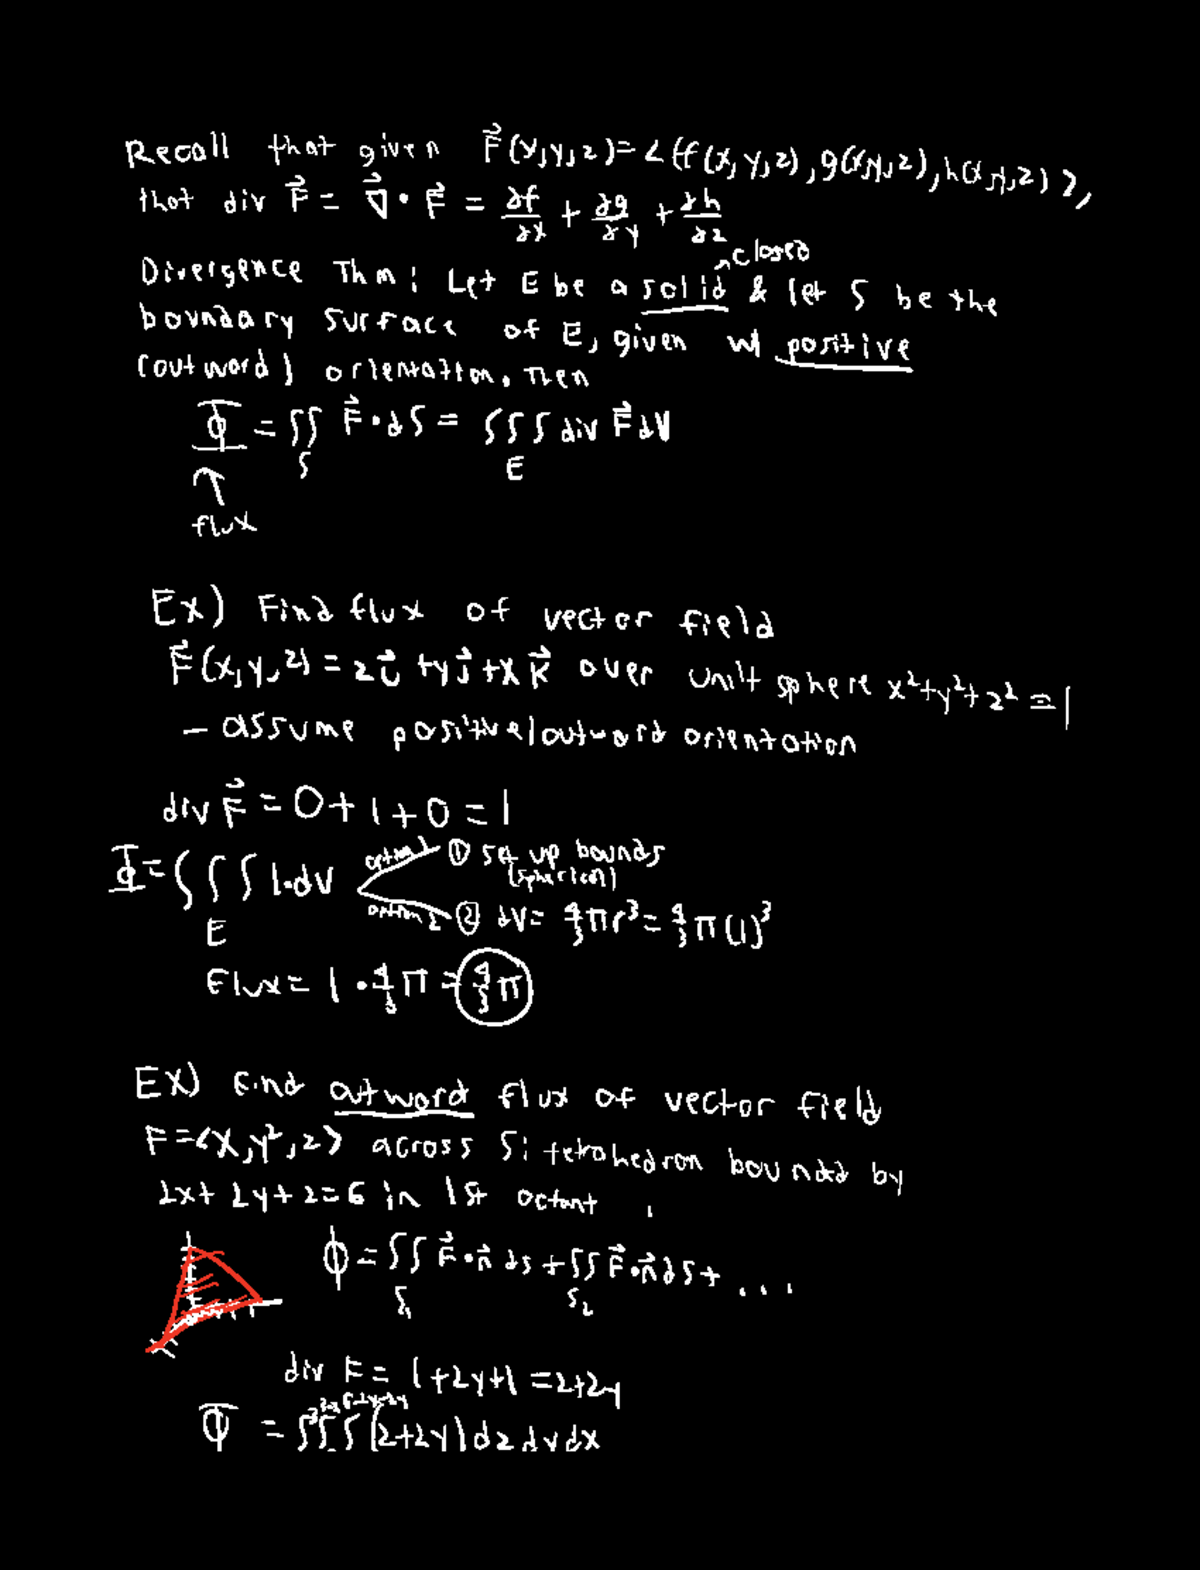 Recall that given F⃗(x,y,z)=<(f(x,y,z),g(x,y,z),h(x,y,z)>,
that div F⃗ = ∇⃗ • F⃗ = ∂f/∂x + ∂g/∂y + ∂h/∂z
closed
Divergence Thm: Let E be a solid & let S be the
boundary surface of E, given w/ positive
(outward) orientation. Then
Φ = ∫∫ F⃗•dS = ∫∫∫ div F⃗ dV
S E
↑
flux
Ex) Find flux of vector field
F⃗(x,y,z) = z i⃗ + y j⃗ + x k⃗ over unit sphere x²+y²+z²=1
- assume positive/outward orientation
div F⃗ = 0+1+0=1
Φ = ∫∫∫ 1•dV option 1 ① set up bounds
(spherical)
E option 2 ② dV= 4/3 πr³ = 4/3 π(1)³
Flux = 1 • 4/3 π = 4/3 π
Ex) Find outward flux of vector field
F=<x,y²,z> across S: tetrahedron bounded by
2x+2y+z=6 in 1st octant
Φ = ∫∫ F⃗•n⃗ ds + ∫∫ F⃗•n⃗ dS + ...
S₁ S₂
div F = 1+2y+1 = 2+2y
Φ = ∫³∫³⁻ˣ∫⁶⁻²ˣ⁻²ʸ (2+2y) dz dy dx